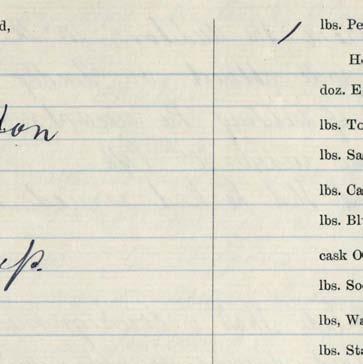 d,
lbs. Pe
H
doz. E
lbs. To
lbs. Sa
lbs. Ca
lbs. Bl
cask O
lbs. So
lbs, Wa
lbs. Sta